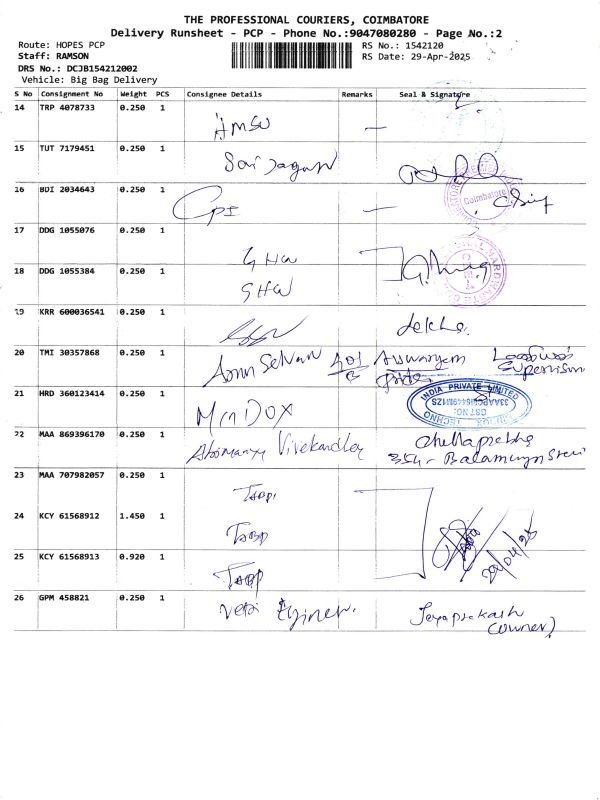 THE PROFESSIONAL COURIERS, COIMBATORE
Delivery Runsheet - PCP - Phone No.:9047080280 - Page No.:2
Route: HOPES PCP
RS No.: 1542120
Staff: RAMSON
RS Date: 29-Apr-2025
DRS No.: DCJB154212002
Vehicle: Big Bag Delivery
S No Consignment No Weight PCS Consignee Details Remarks Seal & Signature
14 TRP 4078733 0.250 1 HMSU —
15 TUT 7179451 0.250 1 Sai Jagan
16 BDI 2034643 0.250 1 CPI —
Coimbatore
17 DDG 1055076 0.250 1 GHW
18 DDG 1055384 0.250 1 GHW
19 KRR 600036541 0.250 1
20 TMI 30357868 0.250 1 Arun Selvan 401 Aiswaryam
G Pride
21 HRD 360123414 0.250 1 MinDOX
INDIA PRIVATE LIMITED
GST NO:
TECHNO
22 MAA 869396170 0.250 1 Abimanyu Vivekandley Chellaprabha
354 - Balamurugan
23 MAA 707982057 0.250 1
24 KCY 61568912 1.450 1 TABP
29/04/25
25 KCY 61568913 0.920 1 TABP
26 GPM 458821 0.250 1 Jeyaprakash
(owner)